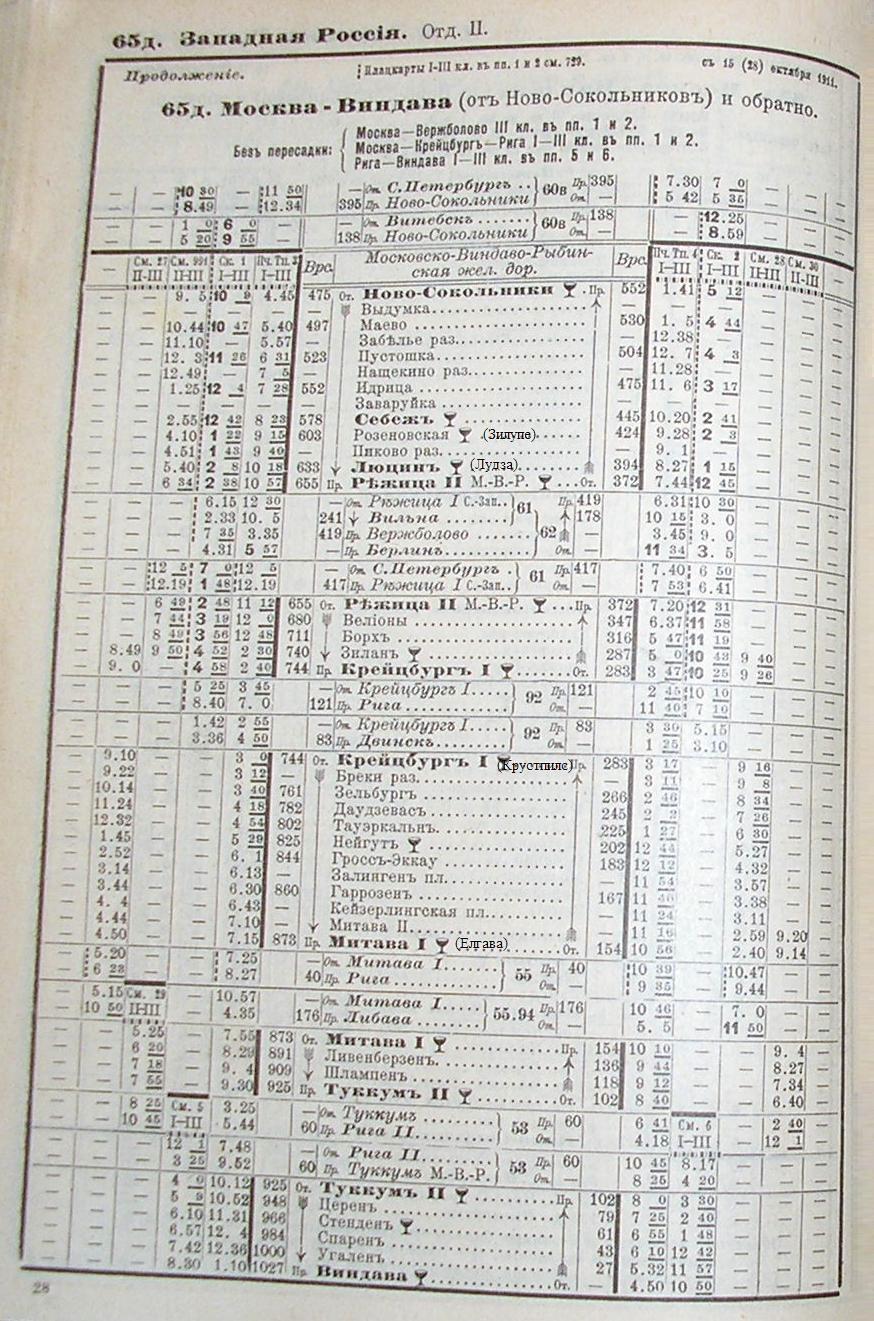 65д. Западная Россія. Отд. II.
Продолженіе. Плацкарты I-III кл. въ пп. 1 и 2 см. 729. съ 15 (28) октября 1911.
65д. Москва - Виндава (отъ Ново-Сокольниковъ) и обратно.
Безъ пересадки:
Москва—Вержболово III кл. въ пп. 1 и 2.
Москва—Крейцбургъ—Рига I—III кл. въ пп. 1 и 2.
Рига—Виндава I—III кл. въ пп. 5 и 6.
— — 10 30 — 11 50 — От. С.Петербургъ .. 60в Пр. 395 7.30 7 0 — —
— — 8.49 — 12.34 395 Пр. Ново-Сокольники От. — 5 42 5 35 — —
— — 1 0 6 0 — — От. Витебскъ ....... 60в Пр. 138 — 12.25 — —
— — 5 20 9 55 — 138 Пр. Ново-Сокольники От. — — 8.59 — —
— См. 27 II-III См. 991 II-III Ск. 1 I-III Пч. Тп. 3 I-III Врс. Московско-Виндаво-Рыбинская жел. дор. Врс. Пч. Тп. 4 I-III Ск. 2 I-III См. 28 II-III См. 30 II-III
— — 9. 5 10 9 4.45 475 От. Ново-Сокольники . Пр. 552 1.41 5 12 — —
Выдумка
— — 10.44 10 47 5.40 497 Маево 530 1. 5 4 44 — —
— — 11.10 — 5.57 — Забѣлье раз. — 12.38 — — —
— — 12. 3 11 26 6 31 523 Пустошка 504 12. 7 4 3 — —
— — 12.49 — 7 5 — Нащекино раз. — 11.28 — — —
— — 1.25 12 4 7 28 552 Идрица 475 11. 6 3 17 — —
Заваруйка
— — 2.55 12 42 8 23 578 Себежъ 445 10.20 2 41 — —
— — 4.10 1 22 9 15 603 Розеновская .(Зилупе) 424 9.28 2 3 — —
— — 4.51 1 43 9 40 — Пиково раз. — 9. 1 — — —
— — 5.40 2 8 10 18 633 Люцинъ (Лудза) 394 8.27 1 15 — —
— — 6 34 2 38 10 57 655 Пр. Рѣжица II М.-В.-Р. От. 372 7.44 12 45 — —
— — — 6.15 12 30 — От. Рѣжица I С.-Зап.. 61 Пр. 419 6.31 10 30 — —
— — — 2.33 10. 5 241 Вильна ........ 62 178 10 15 3. 0 — —
— — — 7 35 3.35 419 Пр. Вержболово 3.45 9. 0 — —
— — — 4.31 5 57 — Пр. Берлинъ От. — 11 34 3. 5 — —
— — 12 5 7 0 12 5 — От. С.Петербургъ . 61 Пр. 417 7.40 6 50 — —
— — 12.19 1 48 12.19 417 Пр. Рѣжица I С.-Зап. От. — 7 53 6.41 — —
— — 6 49 2 48 11 12 655 От. Рѣжица II М.-В.-Р. Пр. 372 7.20 12 31 — —
— — 7 44 3 19 12 0 680 Веліоны 347 6.37 11 58 — —
— — 8 49 3 56 12 48 711 Борхъ 316 5 47 11 19 — —
8.49 9 50 4 52 2 30 740 Зиланъ 287 5 0 10 43 9 40 —
9. 0 — 4 58 2 40 744 Пр. Крейцбургъ I От. 283 3 47 10 25 9 26 —
— — 5 25 3 45 — От. Крейцбургъ I 92 Пр. 121 2 45 10 10 — —
— — 8.40 7. 0 121 Пр. Рига От. — 11 40 7 10 — —
— — 1.42 2 55 — От. Крейцбургъ I 92 Пр. 83 3 30 5.15 — —
— — 3.36 4 50 83 Пр. Двинскъ От. — 1 25 3.10 — —
9.10 — — 3 0 744 От. Крейцбургъ I (Крустпилс) Пр. 283 3 17 — 9 16 —
9.22 — — 3 12 — Бреки раз. — 3 11 — 9 8 —
10.14 — — 3 40 761 Зельбургъ 266 2 46 — 8 34 —
11.24 — — 4 18 782 Даудзевасъ 245 2 2 — 7 26 —
12.32 — — 4 54 802 Тауэркальнъ 225 1 27 — 6 30 —
1.45 — — 5 29 825 Нейгутъ 202 12 44 — 5.27 —
2.52 — — 6. 1 844 Гроссъ-Эккау 183 12 12 — 4.32 —
3.14 — — 6.13 — Залинген пл. — 11 54 — 3.57 —
3.44 — — 6.30 860 Гаррозенъ 167 11 40 — 3.38 —
4. 4 — — 6.43 — Кейзерлингская пл. — 11 24 — 3.11 —
4.44 — — 7.10 — Митава II — 11 16 — 2.59 9.20
4.50 — — 7.15 873 Пр. Митава I (Елгава) От. 154 10 56 — 2.40 9.14
5.20 — — 7.25 — От. Митава I 55 Пр. 40 10 39 — 10.47 —
6 23 — — 8.27 40 Пр. Рига От. — 9 35 — 9.44 —
5.15 См. 29 — 10.57 — От. Митава I 55.94 Пр. 176 10 46 — 7. 0 —
10 50 II-III — 4.35 176 Пр. Либава От. — 5. 5 — 11 50 —
— 5.25 — 7.55 873 От. Митава I Пр. 154 10 10 — — 9. 4 —
— 6 20 — 8.29 891 Ливенберзенъ 136 9 44 — — 8.27 —
— 7 18 — 9. 4 909 Шлампенъ 118 9 12 — — 7.34 —
— 7 55 — 9.30 925 Пр. Туккумъ II От. 102 8 40 — — 6.40 —
— 8 25 См. 5 3.25 — От. Туккумъ 53 Пр. 60 6 41 См. 6 — 2 40 —
— 10 45 I-III 5.44 60 Пр. Рига II От. — 4.18 I-III — 12 1 —
— — 12 1 7.48 — От. Рига II 53 Пр. 60 10 45 8.17 — — —
— — 3 25 9.52 60 Пр. Туккумъ М.-В.-Р. От. — 8 25 4 20 — — —
— — 4 0 10.12 925 От. Туккумъ II Пр. 102 8 0 3 30 — — —
— — 5 9 10.52 948 Церенъ 79 7 25 2 40 — — —
— — 6.10 11.31 966 Стенденъ 61 6 55 1 48 — — —
— — 6.57 12. 4 984 Спаренъ 43 6 10 12 42 — — —
— — 7.42 12.36 1000 Угаленъ 27 5.32 11 57 — — —
— — 8.30 1.10 1027 Пр. Виндава От. — 4.50 10 50 — — —
28